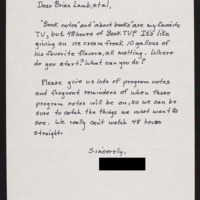 Dear Brian Lamb, et al,
"Book notes" and "about books" are my favorite
TV, but 48 hours of Book TV? It's like
giving an ice cream freak 10 gallons of
his favorite flavors, all melting. Where
do you start? What can you do?
Please give us lots of program notes
and frequent reminders of when those
program notes will be on, so we can be
sure to catch the things we most want to
see. We really can't watch 48 hours
straight.
Sincerely,